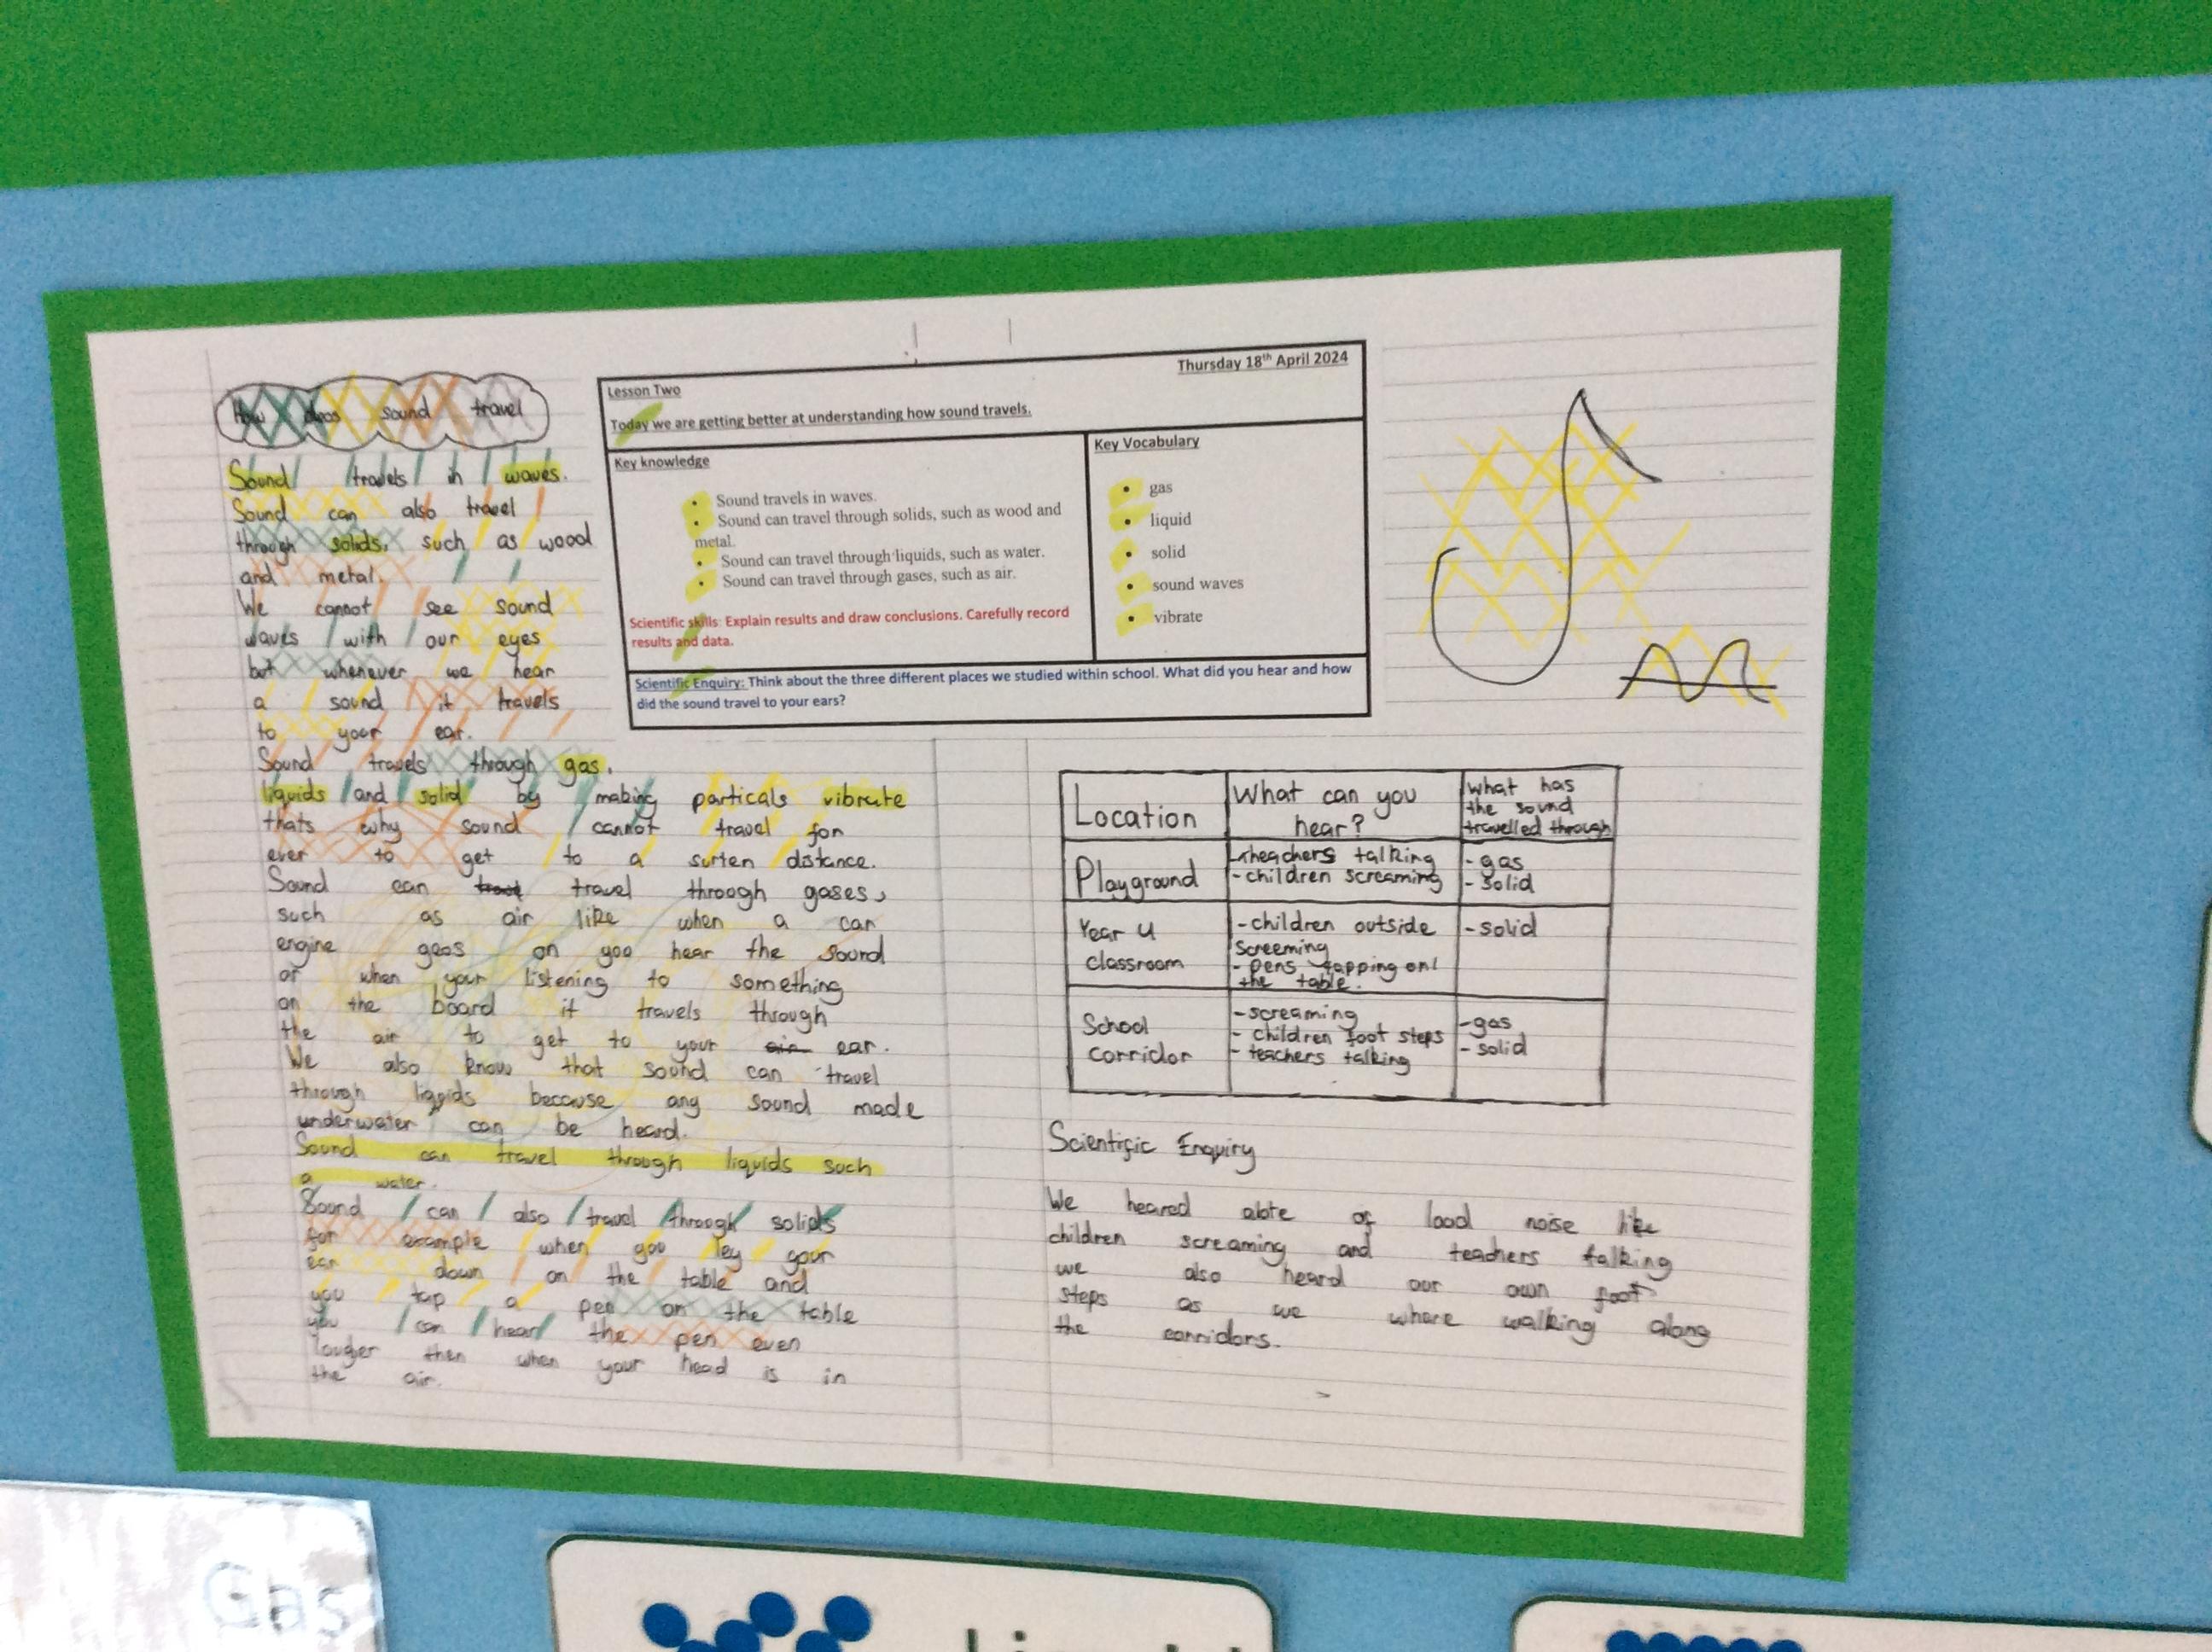 How does sound travel
Sound travels in waves.
Sound can also travel
through solids, such as wood
and metal.
We cannot see sound
waves with our eyes
but whenever we hear
a sound it travels
to your ear.
Sound travels through gas,
liquids and solid by making particals vibrate
thats why sound cannot travel for
ever to get to a surten distance.
Sound can travel through gases,
such as air like when a car
engine goes on you hear the sound
or when your listening to something
on the board it travels through
the air to get to your air ear.
We also know that sound can travel
through liqpids because any sound made
underwater can be heard.
Sound can travel through liquids such
a water.
Sound can also travel through solids
for example when you ley your
ear down on the table and
you tap a pen on the table
you can hear the pen even
louger then when your head is in
the air.
Thursday 18th April 2024
Lesson Two
Today we are getting better at understanding how sound travels.
Key knowledge
• Sound travels in waves.
• Sound can travel through solids, such as wood and
metal.
• Sound can travel through liquids, such as water.
• Sound can travel through gases, such as air.
Scientific skills: Explain results and draw conclusions. Carefully record
results and data.
Key Vocabulary
• gas
• liquid
• solid
• sound waves
• vibrate
Scientific Enquiry: Think about the three different places we studied within school. What did you hear and how
did the sound travel to your ears?
Location
What can you
hear?
what has
the sound
travelled through
Playground
-teachers talking
-children screaming
- gas
- solid
Year 4
classroom
-children outside
Screeming
- pens tapping on
the table.
-solid
School
corridor
-screaming
- children foot steps
- teachers talking
-gas
- solid
Scientific Enquiry
We heared alote of load noise like
children screaming and teachers talking
we also heard our own foot
steps as we where walking along
the corridors.
Gas